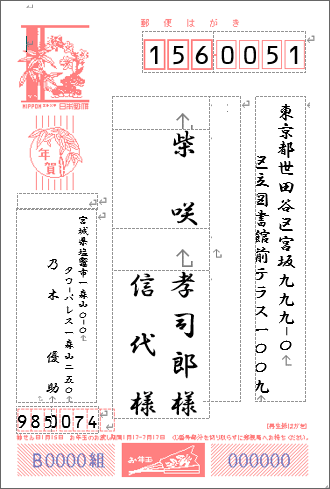 郵便はがき
1560051
NIPPON
日本郵便
年賀
東京都世田谷区宮坂九九九ー〇
区立図書館前テラス一〇〇九
柴咲
孝司郎様
信代様
宮城県塩竈市一森山〇ー〇
タワーパレス一森山二五〇
乃木 優助
9850074
[再生紙はがき]
B0000組
お年玉
000000